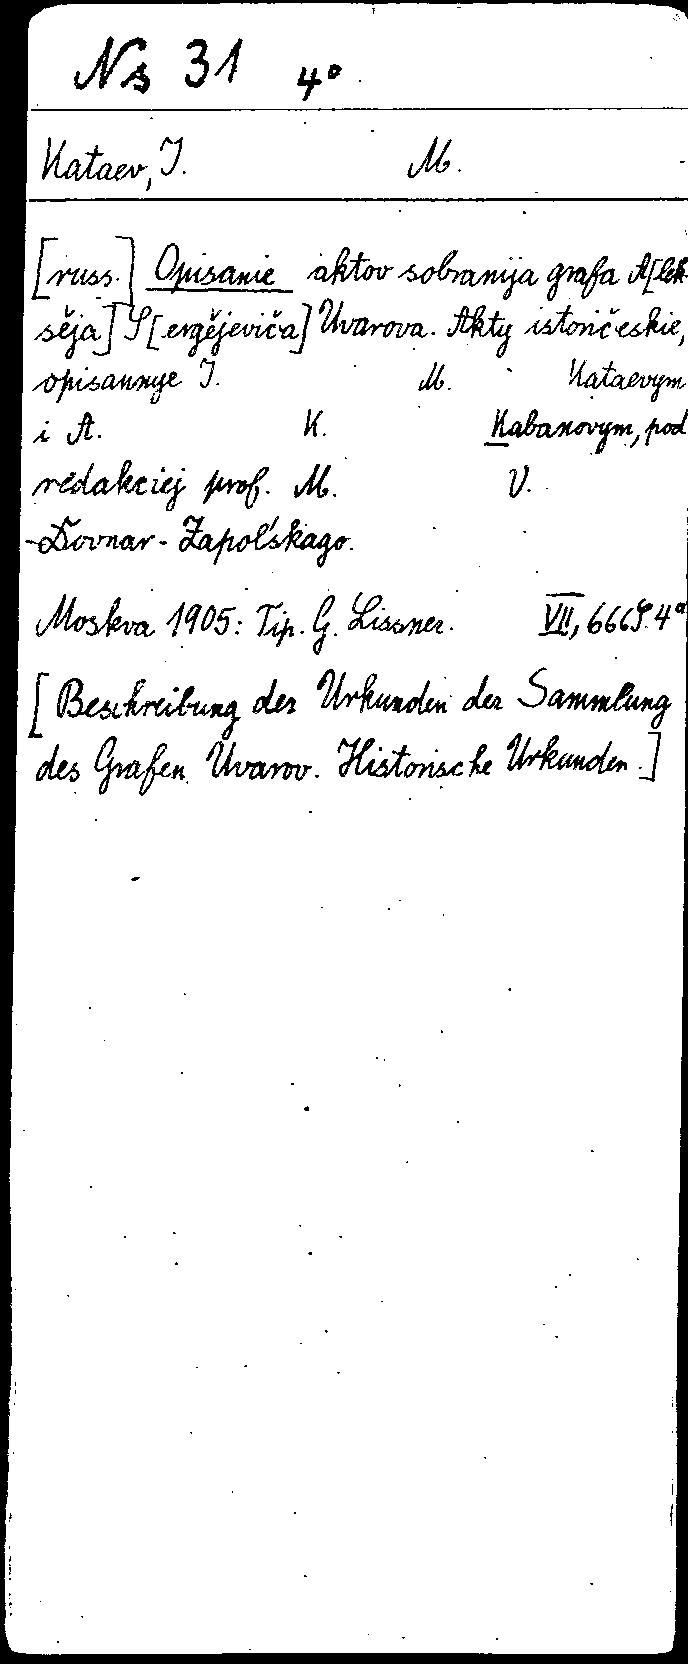 Ns 31 4°
Kataev, I. M.
[russ.] Opisanie aktov sobranija grafa A[lek-
sěja] S[ergějeviča] Uvarova. Akty istoričeskie,
opisannye I. M. Kataevym
i A. K. Kabanovym, pod
redakciej prof. M. V.
-Dovnar-Zapol'skago.
Moskva 1905: Tip. G. Lissner. VII, 666 S. 4°
[Beschreibung der Urkunden der Sammlung
des Grafen Uvarov. Historische Urkunden.]